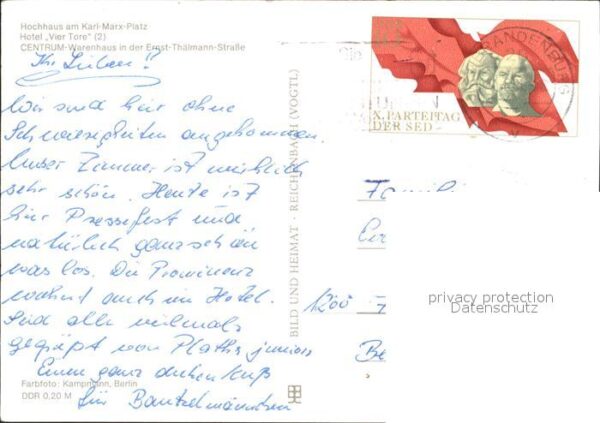 Hochhaus am Karl-Marx-Platz
Hotel „Vier Tore" (2)
CENTRUM-Warenhaus in der Ernst-Thälmann-Straße
Ihr Lieben!!
Wir sind hier ohne
Schwierigkeiten angekommen.
Unser Zimmer ist wirklich
sehr schön. Heute ist
hier Pressefest und
natürlich ganz schön
was los. Die Prominenz
wohnt auch im Hotel.
Seid alle vielmals
gegrüßt von Plaths junior
Einen ganz dicken Kuß
für
Farbfoto: Kampmann, Berlin
DDR 0,20 M
BILD UND HEIMAT · REICHENBACH (VOGTL)
BRANDENBURG
X. PARTEITAG
DER SED
1200
privacy protection
Datenschutz